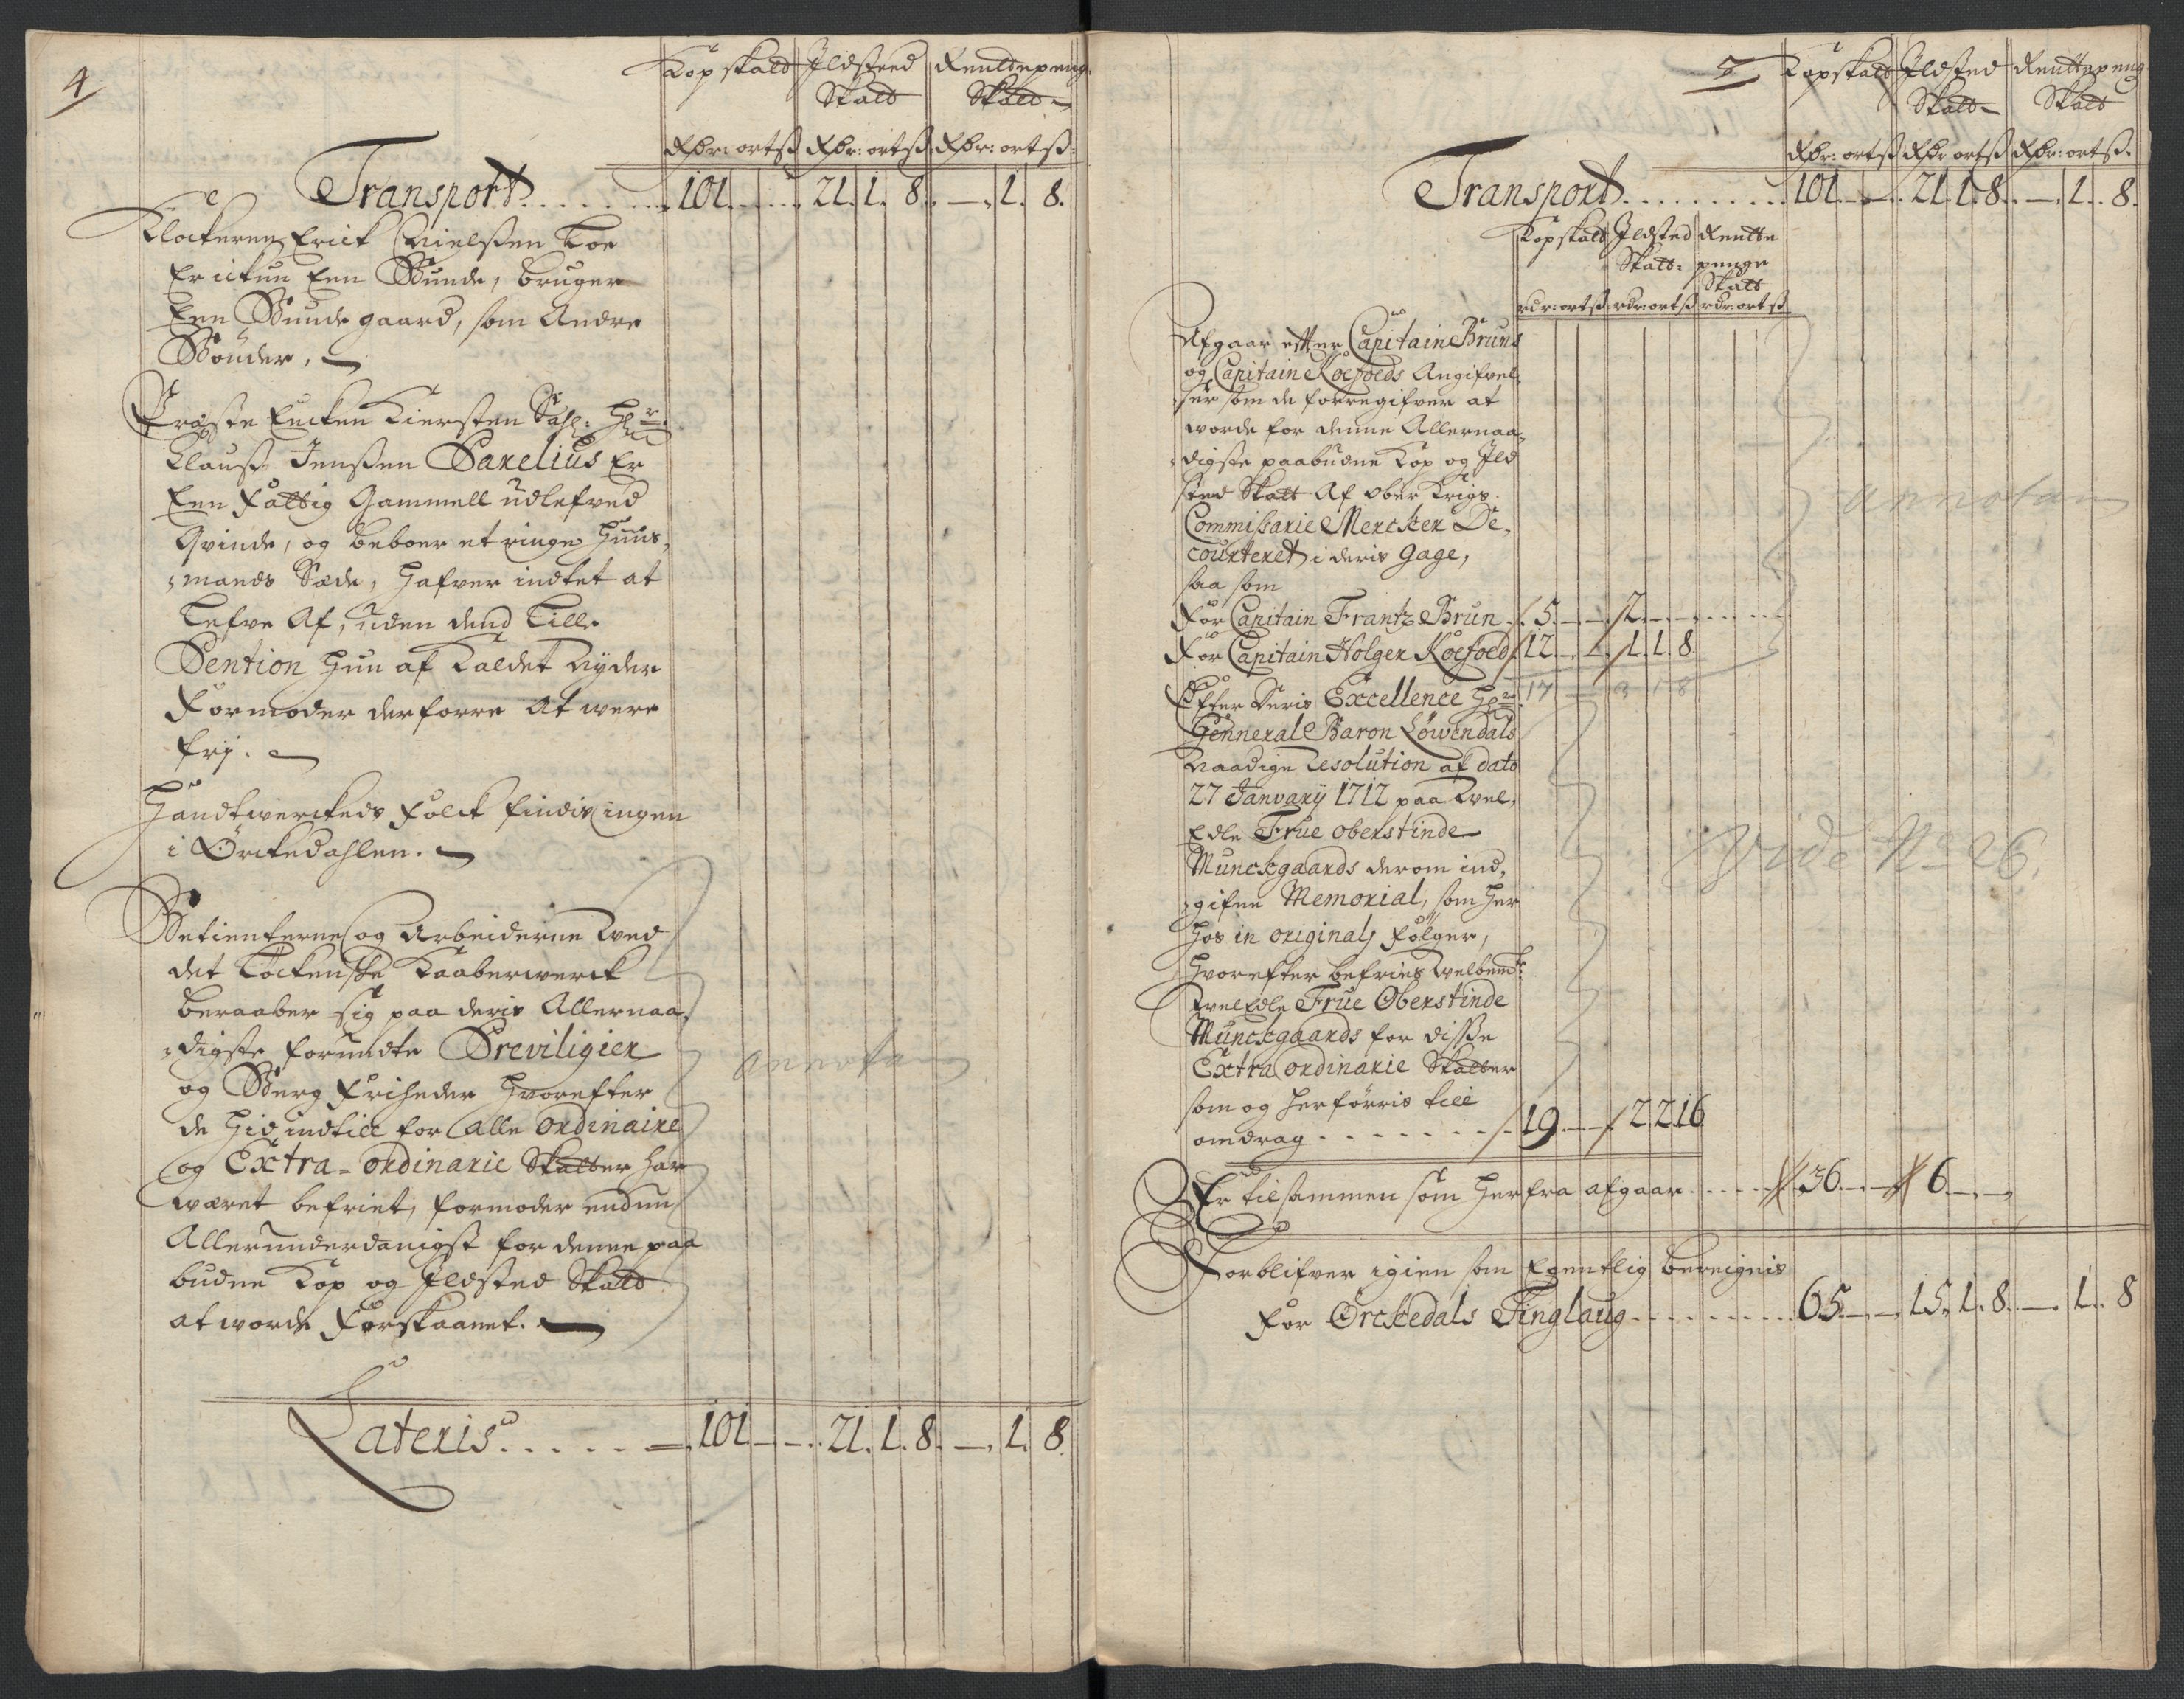 4
Kopskatt Ildsteed Renttepeng
Skatt Skatt
Rdr: ort ß Rdr: ort ß Rdr: ort ß
Transport . . . . . . 101 . — . — . 21 . 1 . 8 . — . 1 . 8 .
Klockeren Erick Nielßen Loe
Er ickun Een Bunde, bruger
Een Bunde gaard, som Andre
Bønder.
Præste Encken Kiersten Sahl: Hr:
Clauß Jenßen Parelius Er
Een Fattig Gammell udlefved
Qvinde, og beboer et ringe Huus,
mands Sæde, hafver indtet at
Lefve Af, uden dend Lille
Pention hun af Kaldet Nyder
Formoder derforre At were
frj.
Handtwerckeds Folck findis ingen
i Ørckedahlen.
Betienterne og Arbeiderne wed
det Løckenske Kaaberwerck
beraaber sig paa deris Allernaa,
digste forundte Previligier
og Berg Friheder hvorefter
de hid indtill for alle ordinaire
og Extra-ordinarie Skatter har
wæret befriet, formoder endnu
Allerunderdanigst for denne paa
budne Kop og Ildsted Skatt
at worde Forskaanet.
annotam
Lateris . . . . . 101 . — . — . 21 . 1 . 8 . — . 1 . 8 .
5
Kopskatt Ildsted Renttepeng
Skatt Skatt
Rdr: ort ß Rdr ort ß Rdr: ort ß
Transport . . . . . . . . . . 101 . — . — . 21 . 1 . 8 . — . 1 . 8 .
Kopskatt Ildsted Rentte
Skatt: penge
Skatt
rdr: ort ß rdr: ort ß rdr: ort ß
Afgaar efter Capitain Bruns
og Capitain Koefoeds Angifvel,
ser som de forregifver at
worde for denne Allernaa,
digste paabudne Kop og Ild
sted Skatt Af ober Krigs.
Commissarie Mercker De,
courteret i deris Gage,
saa som
annotam
For Capitain Frantz Brun . 5 . — . — 2 . — . —
For Capitain Holger Koefoed 12 . — . — 1 . 1 . 8
17 — 3 1 8
Efter Deris Excellence Hr:
Genneral Baron Löwendals
Naadige Resolution af dato
27 January 1712 paa Wel,
Edle Frue oberstinde
Munckgaards derom ind,
gifne Memorial, som her
hos in originalj følger,
hvorefter befries welbemte:
welEdle Frue Oberstinde
Munckgaards for disse
Extra ordinarie Skatter
som og herførris till
omdrag . . . . . . . 19 . — . — 2 2 16
Vide No 26.
Er tilsammen som herfra afgaar . . . . . 36 . — . — 6 . — . —
Forblifver igien som Egentlig bereignis
for Orckedals Tinglaug . . . . . . . . . 65 . — . — 15 . 1 . 8 . — . 1 . 8